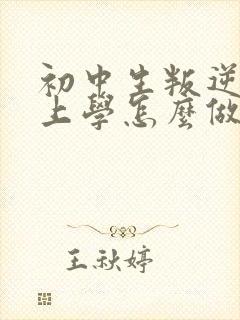 初中生叛逆
上學怎麼做
王秋婷